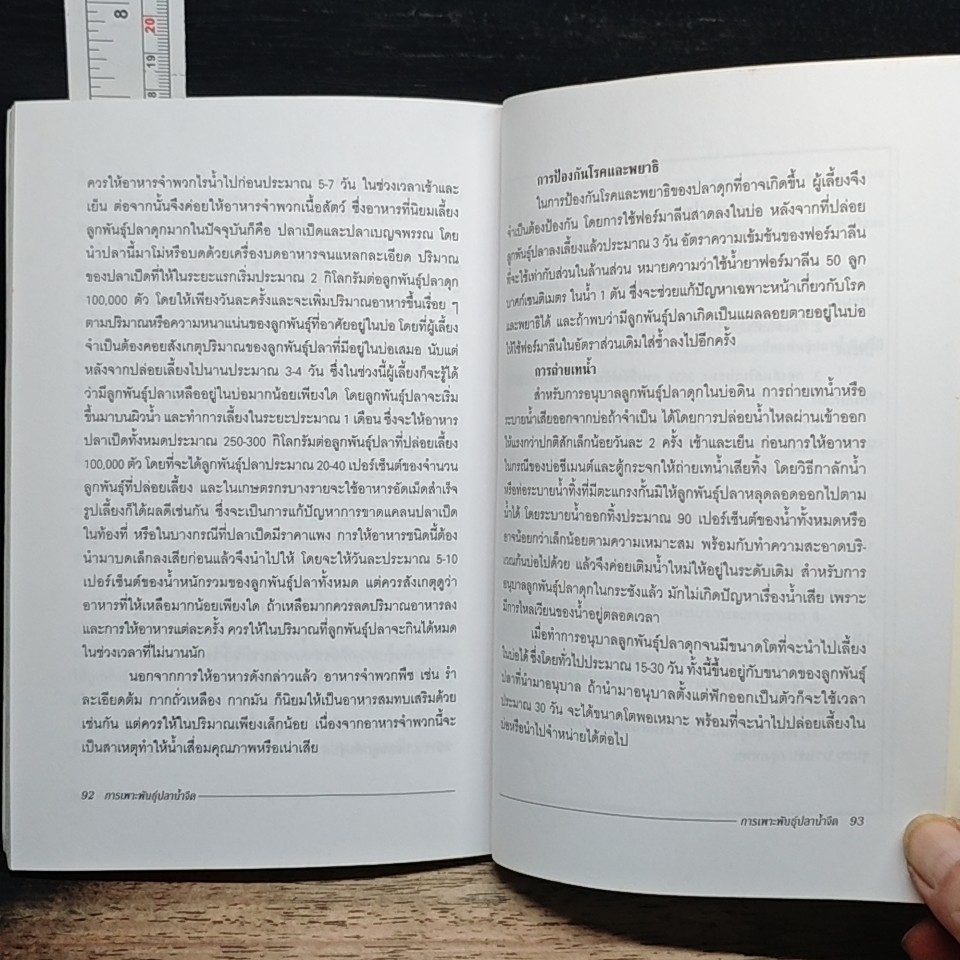 8
20
19
8
ควรให้อาหารจำพวกไรน้ำไปก่อนประมาณ 5-7 วัน ในช่วงเวลาเช้าและ
เย็น ต่อจากนั้นจึงค่อยให้อาหารจำพวกเนื้อสัตว์ ซึ่งอาหารที่นิยมเลี้ยง
ลูกพันธุ์ปลาดุกมากในปัจจุบันก็คือ ปลาเป็ดและปลาเบญจพรรณ โดย
นำปลานี้มาโม่หรือบดด้วยเครื่องบดอาหารจนแหลกละเอียด ปริมาณ
ของปลาเป็ดที่ให้ในระยะแรกเริ่มประมาณ 2 กิโลกรัมต่อลูกพันธุ์ปลาดุก
100,000 ตัว โดยให้เพียงวันละครั้งและจะเพิ่มปริมาณอาหารขึ้นเรื่อย ๆ
ตามปริมาณหรือความหนาแน่นของลูกพันธุ์ที่อาศัยอยู่ในบ่อ โดยที่ผู้เลี้ยง
จำเป็นต้องคอยสังเกตุปริมาณของลูกพันธุ์ปลาที่มีอยู่ในบ่อเสมอ นับแต่
หลังจากปล่อยเลี้ยงไปนานประมาณ 3-4 วัน ซึ่งในช่วงนี้ผู้เลี้ยงก็จะรู้ได้
ว่ามีลูกพันธุ์ปลาเหลืออยู่ในบ่อมากน้อยเพียงใด โดยลูกพันธุ์ปลาจะเริ่ม
ขึ้นมาบนผิวน้ำ และทำการเลี้ยงในระยะประมาณ 1 เดือน ซึ่งจะให้อาหาร
ปลาเป็ดทั้งหมดประมาณ 250-300 กิโลกรัมต่อลูกพันธุ์ปลาที่ปล่อยเลี้ยง
100,000 ตัว โดยที่จะได้ลูกพันธุ์ปลาประมาณ 20-40 เปอร์เซ็นต์ของจำนวน
ลูกพันธุ์ที่ปล่อยเลี้ยง และในเกษตรกรบางรายจะใช้อาหารอัดเม็ดสำเร็จ
รูปเลี้ยงก็ได้ผลดีเช่นกัน ซึ่งจะเป็นการแก้ปัญหาการขาดแคลนปลาเป็ด
ในท้องที่ หรือในบางกรณีที่ปลาเป็ดมีราคาแพง การให้อาหารชนิดนี้ต้อง
นำมาบดเล็กลงเสียก่อนแล้วจึงนำไปให้ โดยจะให้วันละประมาณ 5-10
เปอร์เซ็นต์ของน้ำหนักรวมของลูกพันธุ์ปลาทั้งหมด แต่ควรสังเกตุดูว่า
อาหารที่ให้เหลือมากน้อยเพียงใด ถ้าเหลือมากควรลดปริมาณอาหารลง
และการให้อาหารแต่ละครั้ง ควรให้ในปริมาณที่ลูกพันธุ์ปลาจะกินได้หมด
ในช่วงเวลาที่ไม่นานนัก
นอกจากการให้อาหารดังกล่าวแล้ว อาหารจำพวกพืช เช่น รำ
ละเอียดต้ม กากถั่วเหลือง กากมัน ก็นิยมให้เป็นอาหารสมทบเสริมด้วย
เช่นกัน แต่ควรให้ในปริมาณเพียงเล็กน้อย เนื่องจากอาหารจำพวกนี้จะ
เป็นสาเหตุทำให้น้ำเสื่อมคุณภาพหรือเน่าเสีย
92 การเพาะพันธุ์ปลาน้ำจืด
การป้องกันโรคและพยาธิ
ในการป้องกันโรคและพยาธิของปลาดุกที่อาจเกิดขึ้น ผู้เลี้ยงจึง
จำเป็นต้องป้องกัน โดยการใช้ฟอร์มาลีนสาดลงในบ่อ หลังจากที่ปล่อย
ลูกพันธุ์ปลาลงเลี้ยงแล้วประมาณ 3 วัน อัตราความเข้มข้นของฟอร์มาลีน
ที่จะใช้เท่ากับส่วนในล้านส่วน หมายความว่าใช้น้ำยาฟอร์มาลีน 50 ลูก
บาศก์เซนติเมตร ในน้ำ 1 ตัน ซึ่งจะช่วยแก้ปัญหาเฉพาะหน้าเกี่ยวกับโรค
และพยาธิได้ และถ้าพบว่ามีลูกพันธุ์ปลาเกิดเป็นแผลลอยตายอยู่ในบ่อ
ให้ใช้ฟอร์มาลีนในอัตราส่วนเดิมใส่ซ้ำลงไปอีกครั้ง
การถ่ายเทน้ำ
สำหรับการอนุบาลลูกพันธุ์ปลาดุกในบ่อดิน การถ่ายเทน้ำหรือ
ระบายน้ำเสียออกจากบ่อถ้าจำเป็น ได้โดยการปล่อยน้ำไหลผ่านเข้าออก
ให้แรงกว่าปกติสักเล็กน้อยวันละ 2 ครั้ง เช้าและเย็น ก่อนการให้อาหาร
ในกรณีของบ่อซีเมนต์และตู้กระจกให้ถ่ายเทน้ำเสียทิ้ง โดยวิธีกาลักน้ำ
หรือท่อระบายน้ำทิ้งที่มีตะแกรงกั้นมิให้ลูกพันธุ์ปลาหลุดลอดออกไปตาม
น้ำได้ โดยระบายน้ำออกทิ้งประมาณ 90 เปอร์เซ็นต์ของน้ำทั้งหมดหรือ
อาจน้อยกว่าเล็กน้อยตามความเหมาะสม พร้อมกับทำความสะอาดบริ-
เวณก้นบ่อไปด้วย แล้วจึงค่อยเติมน้ำใหม่ให้อยู่ในระดับเดิม สำหรับการ
อนุบาลลูกพันธุ์ปลาดุกในกระชังแล้ว มักไม่เกิดปัญหาเรื่องน้ำเสีย เพราะ
มีการไหลเวียนของน้ำอยู่ตลอดเวลา
เมื่อทำการอนุบาลลูกพันธุ์ปลาดุกจนมีขนาดโตที่จะนำไปเลี้ยง
ในบ่อได้ ซึ่งโดยทั่วไปประมาณ 15-30 วัน ทั้งนี้ขึ้นอยู่กับขนาดของลูกพันธุ์
ปลาที่นำมาอนุบาล ถ้านำมาอนุบาลตั้งแต่ฟักออกเป็นตัวก็จะใช้เวลา
ประมาณ 30 วัน จะได้ขนาดโตพอเหมาะ พร้อมที่จะนำไปปล่อยเลี้ยงใน
บ่อหรือนำไปจำหน่ายได้ต่อไป
การเพาะพันธุ์ปลาน้ำจืด 93